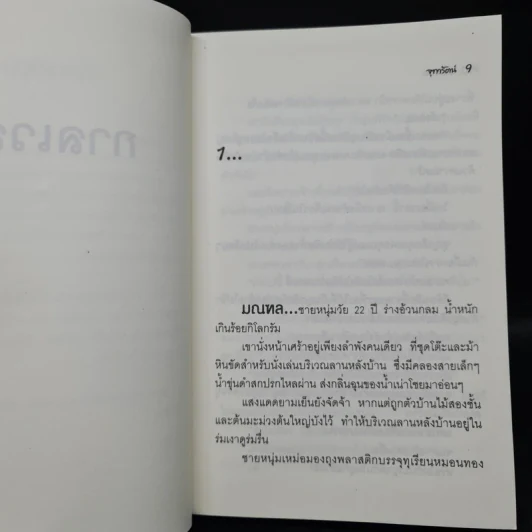 จุฑารัตน์ 9
1...
มณฑล...ชายหนุ่มวัย 22 ปี ร่างอ้วนกลม น้ำหนัก
เกินร้อยกิโลกรัม
เขานั่งหน้าเศร้าอยู่เพียงลำพังคนเดียว ที่ชุดโต๊ะและม้า
หินขัดสำหรับนั่งเล่นบริเวณลานหลังบ้าน ซึ่งมีคลองสายเล็กๆ
น้ำขุ่นดำสกปรกไหลผ่าน ส่งกลิ่นฉุนของน้ำเน่าโชยมาอ่อนๆ
แสงแดดยามเย็นยังจัดจ้า หากแต่ถูกตัวบ้านไม้สองชั้น
และต้นมะม่วงต้นใหญ่บังไว้ ทำให้บริเวณลานหลังบ้านอยู่ใน
ร่มเงาดูร่มรื่น
ชายหนุ่มเหม่อมองถุงพลาสติกบรรจุทุเรียนหมอนทอง